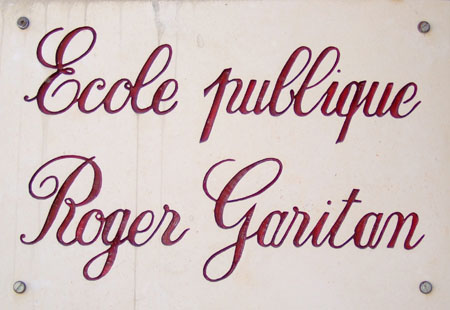 Ecole publique
Roger Garitan